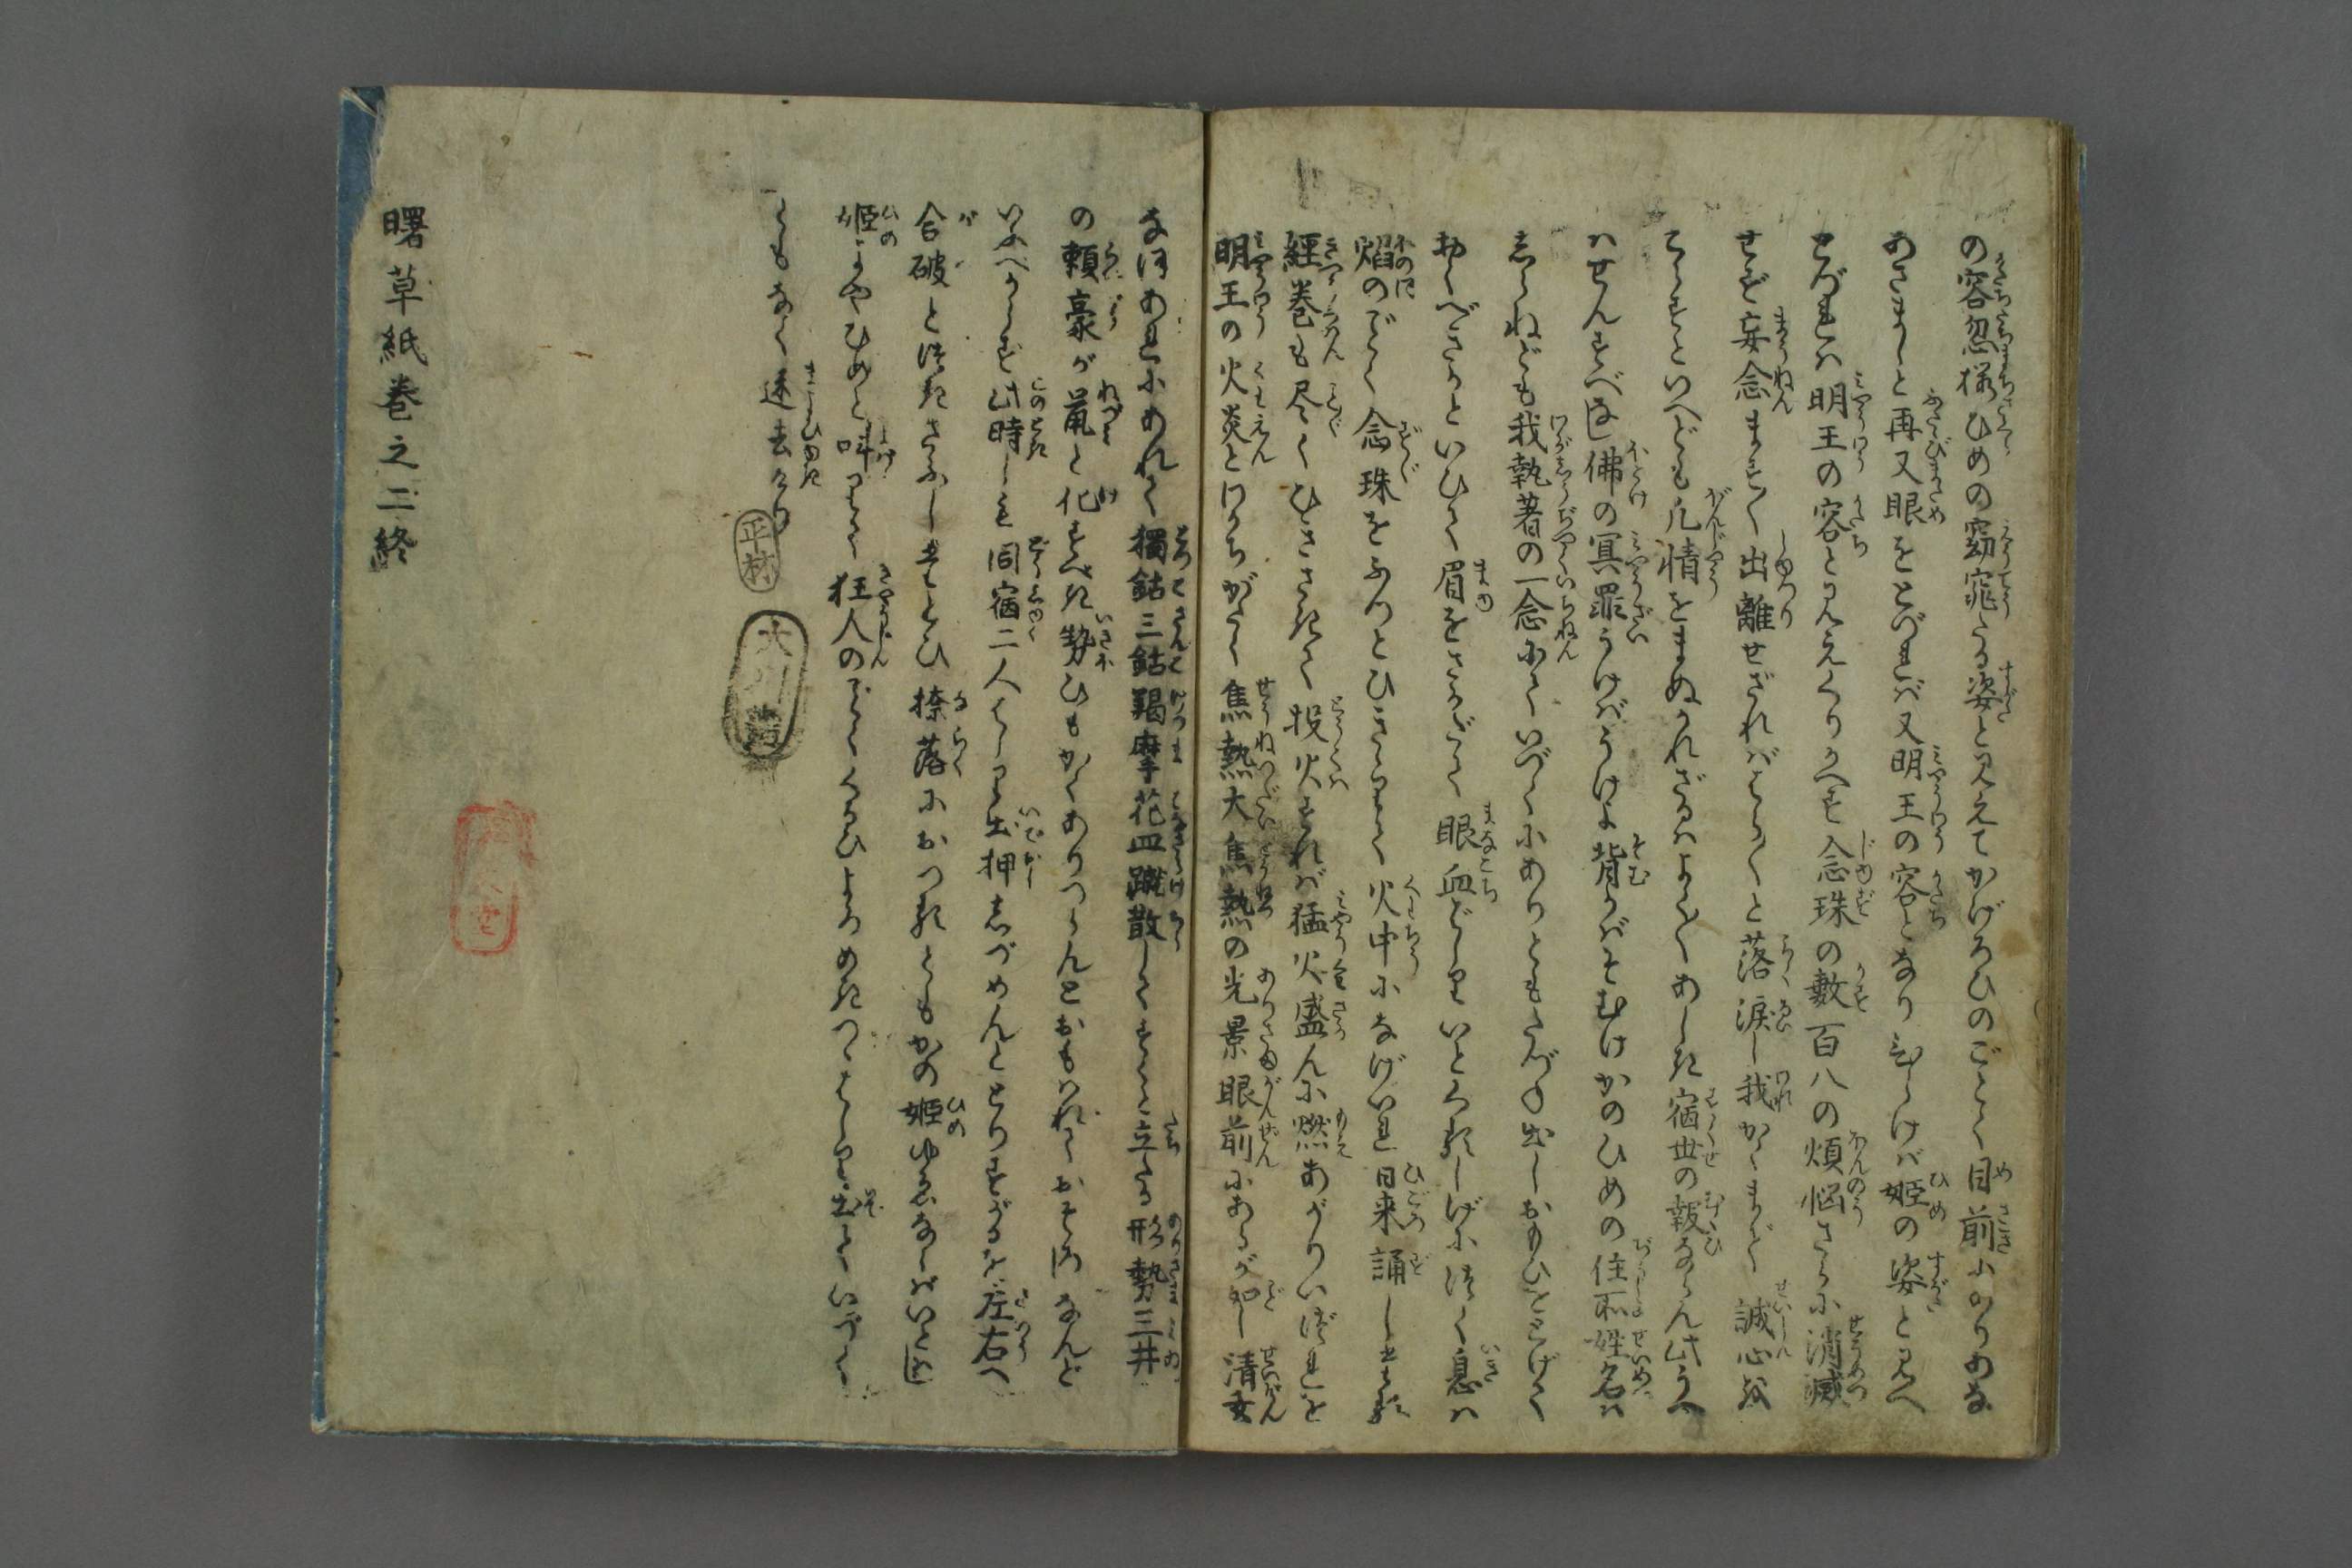 の容忽桜ひめの窈窕たる姿と見えてかげろひのごとく目前にありあな
あさましと再又眼をとづれば又明王の容となりひらけば姫の姿と見へ
とづれば明王の容と見えくりかへす念珠の数百八の煩悩さらに消滅
せず妄念ます〳〵出離せざればはら〳〵と落涙し我かくまで誠心を
こらすといへども凡情をまぬかれざるはよく〳〵あしき宿世の報ならん此うへ
はせんすべなし佛の冥罪うけばうけよ背かばそむけかのひめの住所姓名は
しらねども我執著の一念にていづくにありともたづね出しおもひをとげて
おくべきかといひて眉をさかだて眼血ばしりいとくるしげにつく息は
焔のごとく念珠をふつとひききりて火中になげいれ日来誦しける
經巻も尽くひきさきて投火すれば猛火盛んに燃あがりいづれを
明王の火炎とわかちがたく焦熱大焦熱の光景眼前にあるが如し清玄
なほあれにあれて獨鈷三鈷羯摩花皿蹴散してすくと立たる形勢三井
の頼豪が鼠と化すべき勢ひもかくありつらんとおもはれておそろしなんど
いふべからず此時しも同宿二人はしり出押しづめんととりすがるを左右へ
合破とつきたふしたとひ捺落におつるともかの姫ゆゑならばいとはじ
姫よやひめと叫つゝ狂人のごとくくるひよろめきつゝはしり出ていづく
ともなく迷去けり
平林
大川
曙草紙巻之二終